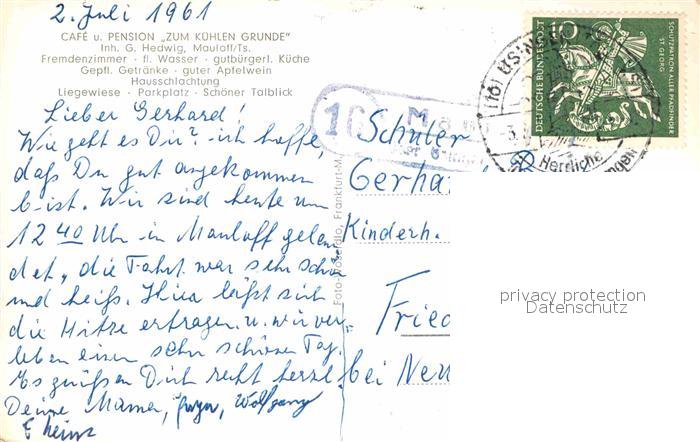 2. Juli 1961
CAFÉ u. PENSION „ZUM KÜHLEN GRUNDE"
Inh. G. Hedwig, Mauloff/Ts.
Fremdenzimmer · fl. Wasser · gutbürgerl. Küche
Gepfl. Getränke · guter Apfelwein
Hausschlachtung
Liegewiese · Parkplatz · Schöner Talblick
Lieber Gerhard!
Wie geht es Dir? ich hoffe,
daß Du gut angekommen
bist. Wir sind heute um
12 40 Uhr in Mauloff gelan
det, die Fahrt war sehr schön
und heiß. Hier läßt sich
die Hitze ertragen u. wir ver=
leben einen sehr schönen Tag.
Es grüßen Dich recht herzl.
Deine Mama, Wolfgang
Heinz
Frankfurt-M.
(16) USINGEN
Herrliche
10
DEUTSCHE BUNDESPOST
SCHUTZPATRON ALLER PFADFINDER
ST. GEORG
Schüler
Gerha
Kinderh.
Fried
bei Neu
privacy protection
Datenschutz